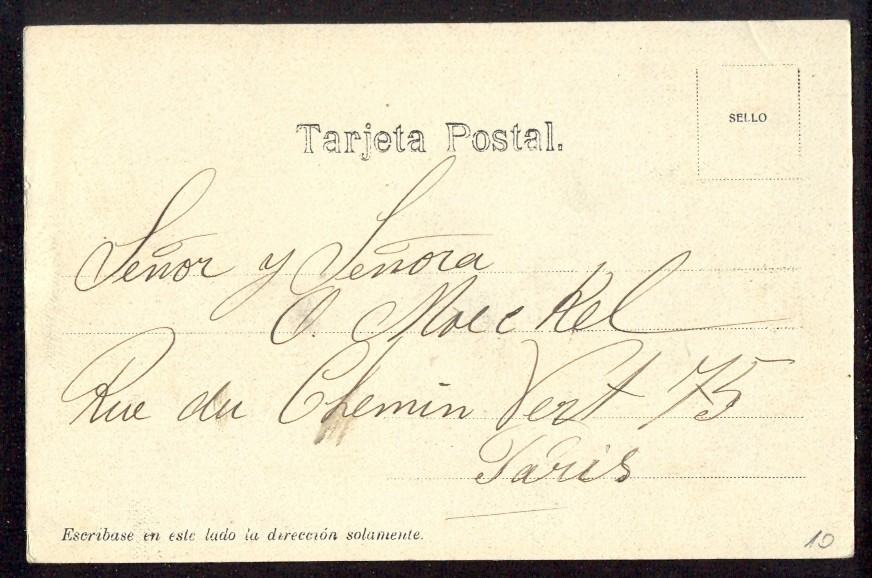 Tarjeta Postal.
SELLO
Señor y Señora
O. Moeckel
Rue du Chemin Vert 75
Paris
Escribase en este lado la dirección solamente.
10